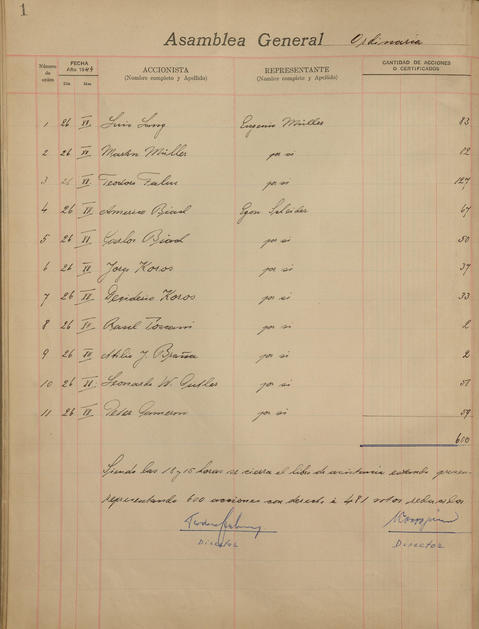 1
Asamblea General Ordinaria
Número de orden
FECHA
Año 1944
Día Mes
ACCIONISTA
(Nombre completo y Apellido)
REPRESENTANTE
(Nombre completo y Apellido)
CANTIDAD DE ACCIONES
O CERTIFICADOS
1 26 VI Luis Lang Eugenio Müller 83
2 26 VI Martin Müller por si 82
3 26 VI Teodoro por si 127
4 26 VI Americo Biasd Egon 67
5 26 VI Carlos Biasd por si 50
6 26 VI Jorge Koros por si 37
7 26 VI Desiderio Koros por si 33
8 26 VI Raul Toscani por si 2
9 26 VI Atilio J. Braña por si 2
10 26 VI Leonardo W. Cutler por si 58
11 26 VI Peter Cameron por si 59
600
Siendo las 18 y 15 horas se cierra el libro de asistencia estando presen-
representando 600 acciones con derecho a 481 votos
Director Director